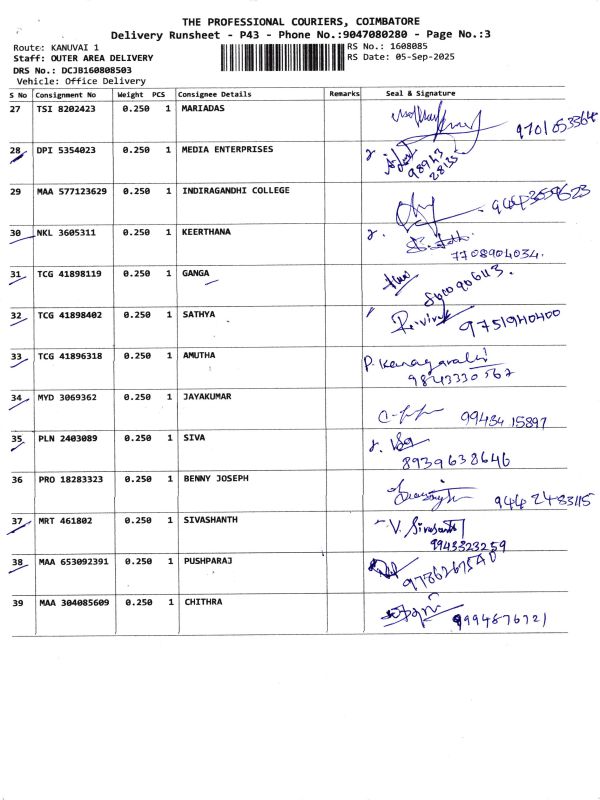 THE PROFESSIONAL COURIERS, COIMBATORE
Delivery Runsheet - P43 - Phone No.:9047080280 - Page No.:3
Route: KANUVAI 1 RS No.: 1608085
Staff: OUTER AREA DELIVERY RS Date: 05-Sep-2025
DRS No.: DCJB160808503
Vehicle: Office Delivery
S No Consignment No Weight PCS Consignee Details Remarks Seal & Signature
27 TSI 8202423 0.250 1 MARIADAS
28 DPI 5354023 0.250 1 MEDIA ENTERPRISES 98943 28133
29 MAA 577123629 0.250 1 INDIRAGANDHI COLLEGE
30 NKL 3605311 0.250 1 KEERTHANA 7708904034.
31 TCG 41898119 0.250 1 GANGA
32 TCG 41898402 0.250 1 SATHYA 9751940400
33 TCG 41896318 0.250 1 AMUTHA 9843330562
34 MYD 3069362 0.250 1 JAYAKUMAR 99434 15897
35 PLN 2403089 0.250 1 SIVA 8939638646
36 PRO 18283323 0.250 1 BENNY JOSEPH 9442483115
37 MRT 461802 0.250 1 SIVASHANTH V. Sivasanth
9943323259
38 MAA 653092391 0.250 1 PUSHPARAJ
39 MAA 304085609 0.250 1 CHITHRA 9994876721